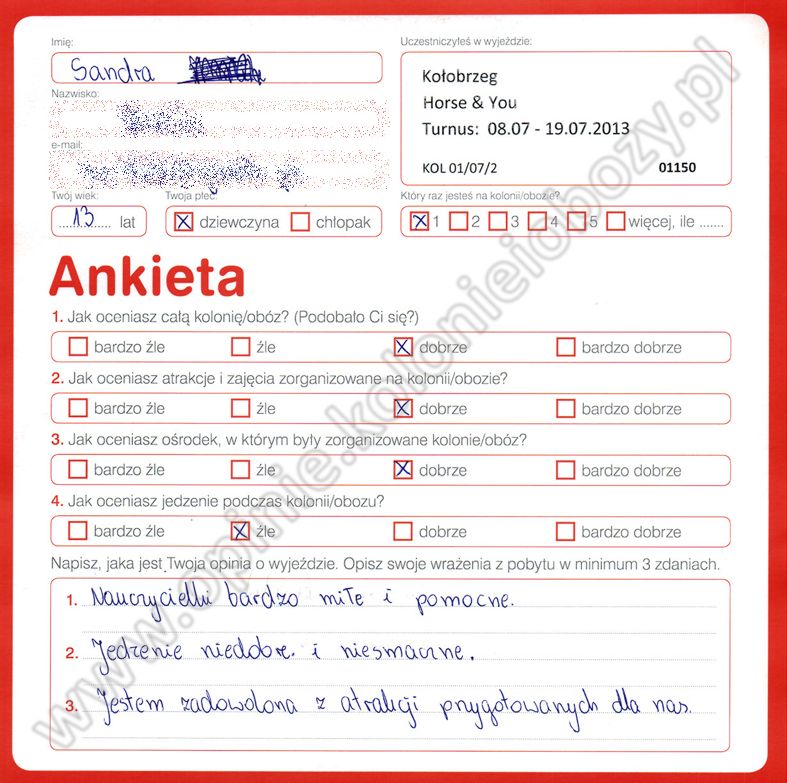 Imię:
Sandra
Uczestniczyłeś w wyjeździe:
Kołobrzeg
Horse & You
Turnus: 08.07 - 19.07.2013
KOL 01/07/2 01150
Nazwisko:
e-mail:
Twój wiek:
13 lat
Twoja płeć:
dziewczyna chłopak
Który raz jesteś na kolonii/obozie?
1 2 3 4 5 więcej, ile .......
Ankieta
1. Jak oceniasz całą kolonię/obóz? (Podobało Ci się?)
bardzo źle źle dobrze bardzo dobrze
2. Jak oceniasz atrakcje i zajęcia zorganizowane na kolonii/obozie?
bardzo źle źle dobrze bardzo dobrze
3. Jak oceniasz ośrodek, w którym były zorganizowane kolonie/obóz?
bardzo źle źle dobrze bardzo dobrze
4. Jak oceniasz jedzenie podczas kolonii/obozu?
bardzo źle źle dobrze bardzo dobrze
Napisz, jaka jest Twoja opinia o wyjeździe. Opisz swoje wrażenia z pobytu w minimum 3 zdaniach.
1. Nauczycielki bardzo miłe i pomocne.
2. Jedzenie niedobre. i niesmaczne.
3. Jestem zadowolona z atrakcji przygotowanych dla nas.
www.opinie.kolonieiobozy.pl